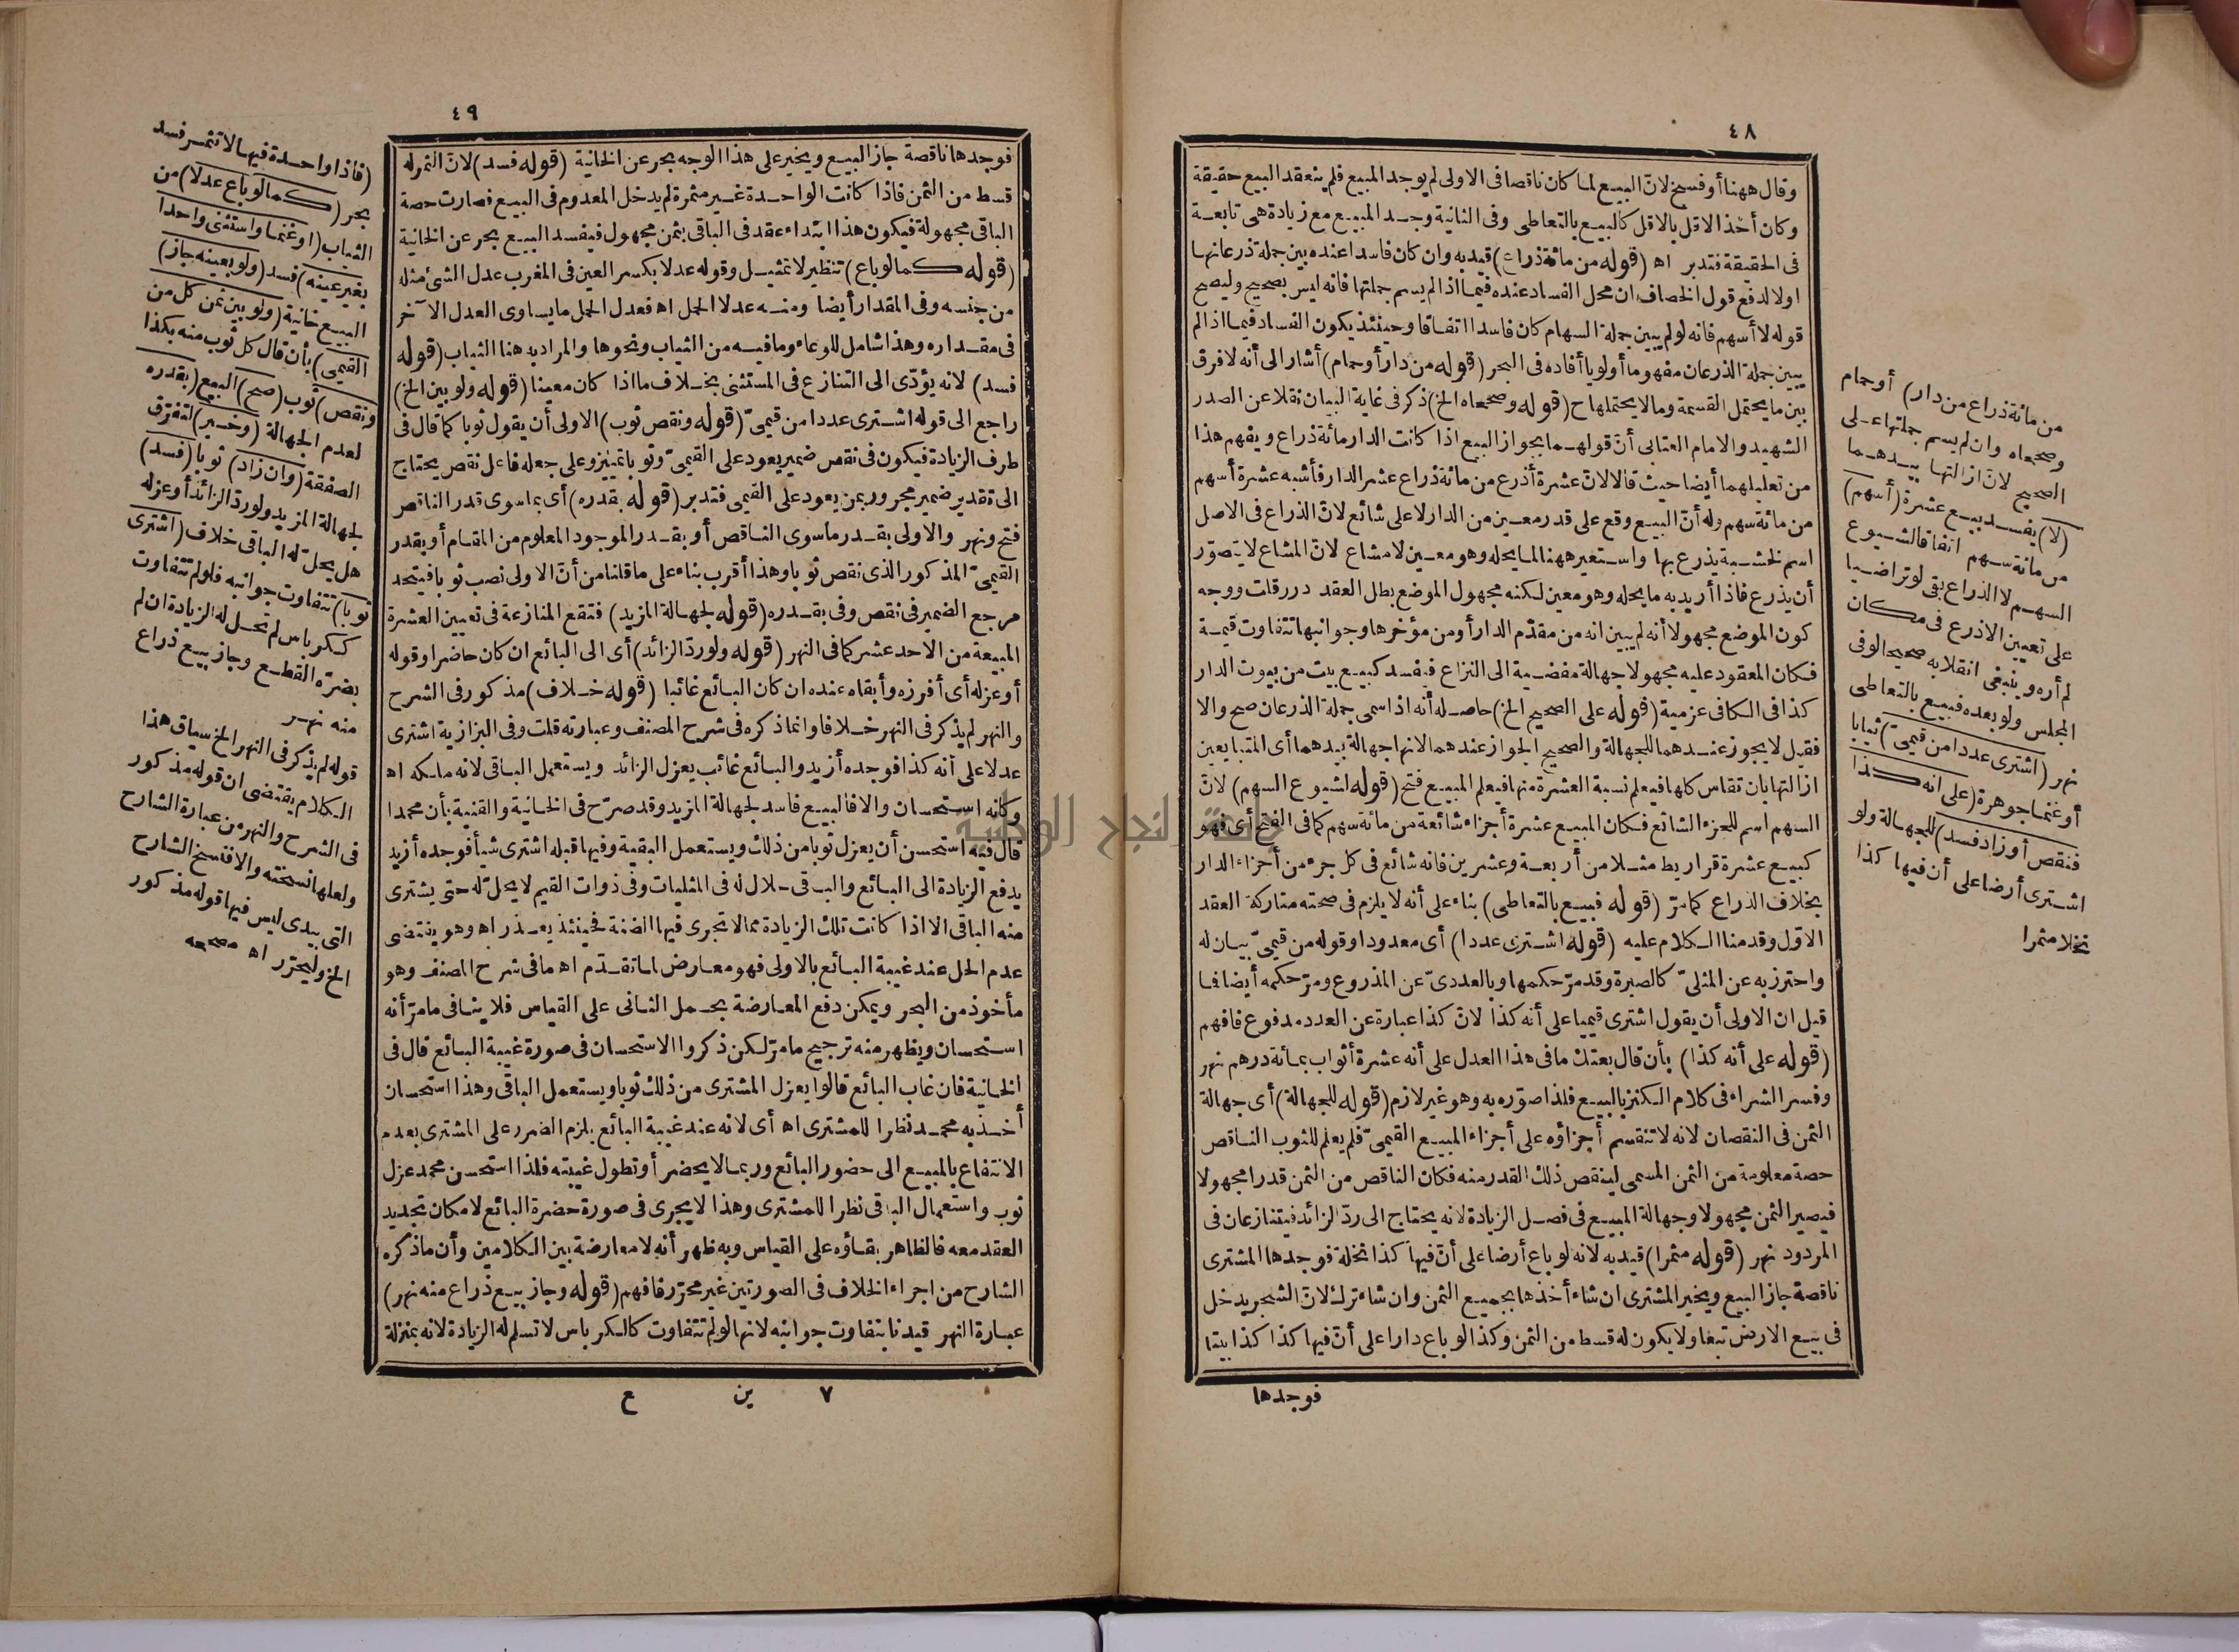 ٤٨
وقال ههنا أو فسخ لانّ البيع لما كان ناقصا فى الاولى لم يوجد المبيع فلم ينعقد البيع حقيقة
وكان أخذ الاقل بالاقل كالبيع بالتعاطى وفى الثانية وجد المبيع مع زيادة هى تابعة
فى الحقيقة فتدبر اه (قوله من مائة ذراع) قيد به وان كان فاسدا عنده بين جملة ذرعانها
اولا لدفع قول الخصاف ان محل الفساد عنده فيما اذا لم يسم جملتها فانه ليس بصحيح وليصح
قوله لا أسهم فانه لو لم يبين جملة السهام كان فاسدا اتفاقا وحينئذ يكون الفساد فيما اذا لم
يبين جملة الذرعان مفهوما أولويا أفاده فى البحر (قوله من دار أو حمام) أشار الى أنه لا فرق
بين ما يحتمل القسمة وما لا يحتملها ح (قوله وصححاه الخ) ذكر فى غاية البيان نقلا عن الصدر
الشهيد والامام العتابى أنّ قولهما بجواز البيع اذا كانت الدار مائة ذراع ويفهم هذا
من تعليلهما أيضا حيث قالا لانّ عشرة أذرع من مائة ذراع عشر الدار فأشبه عشرة أسهم
من مائة سهم وله أنّ البيع وقع على قدر معين من الدار لا على شائع لانّ الذراع فى الاصل
اسم لخشبة يذرع بها واستعير ههنا لما يحله وهو معين لا مشاع لانّ المشاع لا يتصوّر
أن يذرع فاذا أريد به ما يحله وهو معين لكنه مجهول الموضع بطل العقد درر قلت ووجه
كون الموضع مجهولا أنه لم يبين انه من مقدّم الدار أو من مؤخرها وجوانبها تتفاوت قيمة
فكان المعقود عليه مجهولا جهالة مفضية الى النزاع فيفسد كبيع بيت من بيوت الدار
كذا فى الكافى عزمية (قوله على الصحيح الخ) حاصله أنه اذا سمى جملة الذرعان صح والا
فقيل لا يجوز عندهما للجهالة والصحيح الجواز عندهما لانها جهالة بيدهما أى المتبايعين
ازالتها بان تقاس كلها فيعلم نسبة العشرة منها فيعلم المبيع فتح (قوله لشيوع السهم) لانّ
السهم اسم للجزء الشائع فكان المبيع عشرة أجزاء شائعة من مائة سهم كما فى الفتح أى فهو
كبيع عشرة قراريط مثلا من أربعة وعشرين فانه شائع فى كل جزء من أجزاء الدار
بخلاف الذراع كما مرّ (قوله فبيع بالتعاطى) بناء على أنه لا يلزم فى صحته متاركة العقد
الاوّل وقدمنا الكلام عليه (قوله اشترى عددا) أى معدودا وقوله من قيمىّ بيان له
واحترز به عن المثلىّ كالصبرة وقد مرّ حكمها وبالعددىّ عن المذروع ومرّ حكمه أيضا فما
قيل ان الاولى أن يقول اشترى قيميا على أنه كذا لانّ كذا عبارة عن العدد مدفوع فافهم
(قوله على أنه كذا) بأن قال بعتك ما فى هذا العدل على أنه عشرة أثواب بمائة درهم نهر
وفسر الشراء فى كلام الكنز بالبيع فلذا صوّره به وهو غير لازم (قوله للجهالة) أى جهالة
الثمن فى النقصان لانه لا تنقسم أجزاؤه على أجزاء المبيع القيمىّ فلم يعلم للثوب الناقص
حصة معلومة من الثمن المسمى لينقص ذلك القدر منه فكان الناقص من الثمن قدرا مجهولا
فيصير الثمن مجهولا وجهالة المبيع فى فصل الزيادة لانه يحتاج الى ردّ الزائد فيتنازعان فى
المردود نهر (قوله مثمرا) قيد به لانه لو باع أرضا على أنّ فيها كذا نخلة فوجدها المشترى
ناقصة جاز البيع ويخير المشترى ان شاء أخذها بجميع الثمن وان شاء ترك لانّ الشجر يدخل
فى بيع الارض تبعا ولا يكون له قسط من الثمن وكذا لو باع دارا على أنّ فيها كذا كذا بيتا
فوجدها
من مائة ذراع من دار) أو حمام
وصححاه وان لم يسم جملتها على
الصحيح لانّ ازالتها بيدهما
(لا) يفسد بيع عشرة (أسهم)
من مائة سهم اتفاقا لشيوع
السهم لا الذراع بقى لو تراضيا
على تعيين الاذرع فى مكان
لم أره وينبغى انقلابه صحيحا لو فى
المجلس ولو بعده فبيع بالتعاطى
نهر (اشترى عددا من قيمىّ) ثيابا
أو غنما جوهرة (على انه كذا
فنقص أو زاد فسد) للجهالة ولو
اشترى أرضا على أن فيها كذا
نخلا مثمرا
٤٩
فوجدها ناقصة جاز البيع ويخير على هذا الوجه بحر عن الخانية (قوله فسد) لانّ الثمر له
قسط من الثمن فاذا كانت الواحدة غير مثمرة لم يدخل المعدوم فى البيع فصارت حصة
الباقى مجهولة فيكون هذا ابتداء عقد فى الباقى بثمن مجهول فيفسد البيع بحر عن الخانية
(قوله كما لو باع) تنظير لا تمثيل وقوله عدلا بكسر العين فى المغرب عدل الشئ مثله
من جنسه وفى المقدار أيضا ومنه عدلا الحمل اه فعدل الحمل ما يساوى العدل الآخر
فى مقداره وهذا شامل للوعاء وما فيه من الثياب ونحوها والمراد به هنا الثياب (قوله
فسد) لانه يؤدّى الى التنازع فى المستثنى بخلاف ما اذا كان معينا (قوله ولو بين الخ)
راجع الى قوله اشترى عددا من قيمىّ (قوله ونقص ثوب) الاولى أن يقول ثوبا كما قال فى
طرف الزيادة فيكون فى نقص ضمير يعود على القيمىّ وثوبا تمييز وعلى جعله فاعل نقص يحتاج
الى تقدير ضمير مجرور بمن يعود على القيمى فتدبر (قوله بقدره) أى بما سوى قدر الناقص
فتح ونهر والاولى بقدر ما سوى الناقص أو بقدر الموجود المعلوم من المقام أو بقدر
القيمىّ المذكور الذى نقص ثوبا وهذا أقرب بناء على ما قلنا من أنّ الاولى نصب ثوبا فيتحد
مرجع الضمير فى نقص وفى بقدره (قوله لجهالة المزيد) فتقع المنازعة فى تعيين العشرة
المبيعة من الاحد عشر كما فى النهر (قوله ولو ردّ الزائد) أى الى البائع ان كان حاضرا وقوله
أو عزله أى أفرزه وأبقاه عنده ان كان البائع غائبا (قوله خلاف) مذكور فى الشرح
والنهر لم يذكر فى النهر خلافا وانما ذكره فى شرح المصنف وعبارته قلت وفى البزازية اشترى
عدلا على أنه كذا فوجده أزيد والبائع غائب يعزل الزائد ويستعمل الباقى لانه ملكه اه
وكأنه استحسان والا فالبيع فاسد لجهالة المزيد وقد صرّح فى الخانية والقنية بأن محمدا
قال فيه استحسن أن يعزل ثوبا من ذلك ويستعمل البقية وفيها قبله اشترى شيأ فوجده أزيد
يدفع الزيادة الى البائع والباقى حلال له فى المثليات وفى ذوات القيم لا يحلّ له حتى يشترى
منه الباقى الا اذا كانت تلك الزيادة مما لا تجرى فيها الضنة فحينئذ يعذر اه وهو يقتضى
عدم الحل عند غيبة البائع بالاولى فهو معارض لما تقدّم اه ما فى شرح المصنف وهو
مأخوذ من البحر ويمكن دفع المعارضة بحمل الثانى على القياس فلا ينافى ما مرّ أنه
استحسان ويظهر منه ترجيح ما مرّ لكن ذكروا الاستحسان فى صورة غيبة البائع قال فى
الخانية فان غاب البائع قالوا يعزل المشترى من ذلك ثوبا ويستعمل الباقى وهذا استحسان
أخذ به محمد نظرا للمشترى اه أى لانه عند غيبة البائع يلزم الضرر على المشترى بعدم
الانتفاع بالمبيع الى حضور البائع وربما لا يحضر أو تطول غيبته فلذا استحسن محمد عزل
ثوب واستعمال الباقى نظرا للمشترى وهذا لا يجرى فى صورة حضرة البائع لامكان تجديد
العقد معه فالظاهر بقاؤه على القياس وبه ظهر أنه لا معارضة بين الكلامين وأن ما ذكره
الشارح من اجراء الخلاف فى الصورتين غير محرّر فافهم (قوله وجاز بيع ذراع منه نهر)
عبارة النهر قيدنا بتفاوت جوانبه لانها لو لم تتفاوت كالكرباس لا تسلم له الزيادة لانه بمنزلة
٧ ين ع
(فاذا واحدة فيها لا تثمر فسد
بحر (كما لو باع عدلا) من
الثياب (أو غنما واستثنى واحدا
بغير عينه) فسد (ولو بعينه جاز)
البيع خانية (ولو بين ثمن كل من
القيمى) بأن قال كل ثوب منه بكذا
ونقص) ثوب (صح) البيع (بقدره
لعدم الجهالة (وخير) لتفرّق
الصفقة (وان زاد) ثوبا (فسد)
لجهالة المزيد ولو ردّ الزائد أو عزله
هل يحلّ له الباقى خلاف (اشترى
ثوبا) تتفاوت جوانبه فلو لم تتفاوت
ككرباس لم تحل له الزيادة ان لم
يضرّه القطع وجاز بيع ذراع
منه نهر
قوله لم يذكر فى النهر الخ سياق هذا
الكلام يقتضى ان قوله مذكور
فى الشرح والنهر من عبارة الشارح
ولعلها نسخته والا فنسخ الشارح
التى بيدى ليس فيها قوله مذكور
الخ وليحرّر اه مصححه
جامعة النجاح الوطنية